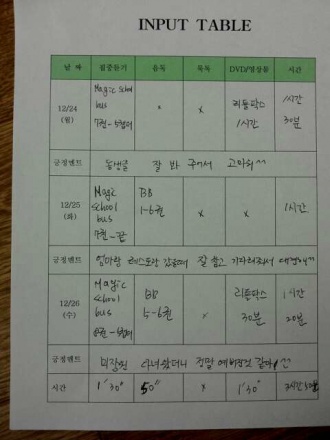 INPUT TABLE
날짜 집중듣기 음독 묵독 DVD/영상물 시간
12/24
(월)
Magic School
bus
7권-5챕터
x
x
리틀팍스
1시간
1시간
30분
긍정멘트 동생을 잘 봐 주어서 고마워^^
12/25
(화)
Magic
school
bus
7권-끝
BB
1-6권
x
x
1시간
긍정멘트 엄마랑 레스토랑 갔을때 잘 참고 기다려줘서
12/26
(수)
Magic
school
bus
8권-5챕터
BB
5-6권
x
리틀팍스
30분
1시간
20분
긍정멘트 미장원 다녀왔더니 정말 예뻐진것 같아! ^^
시간 1'30" 50" x 1'30"